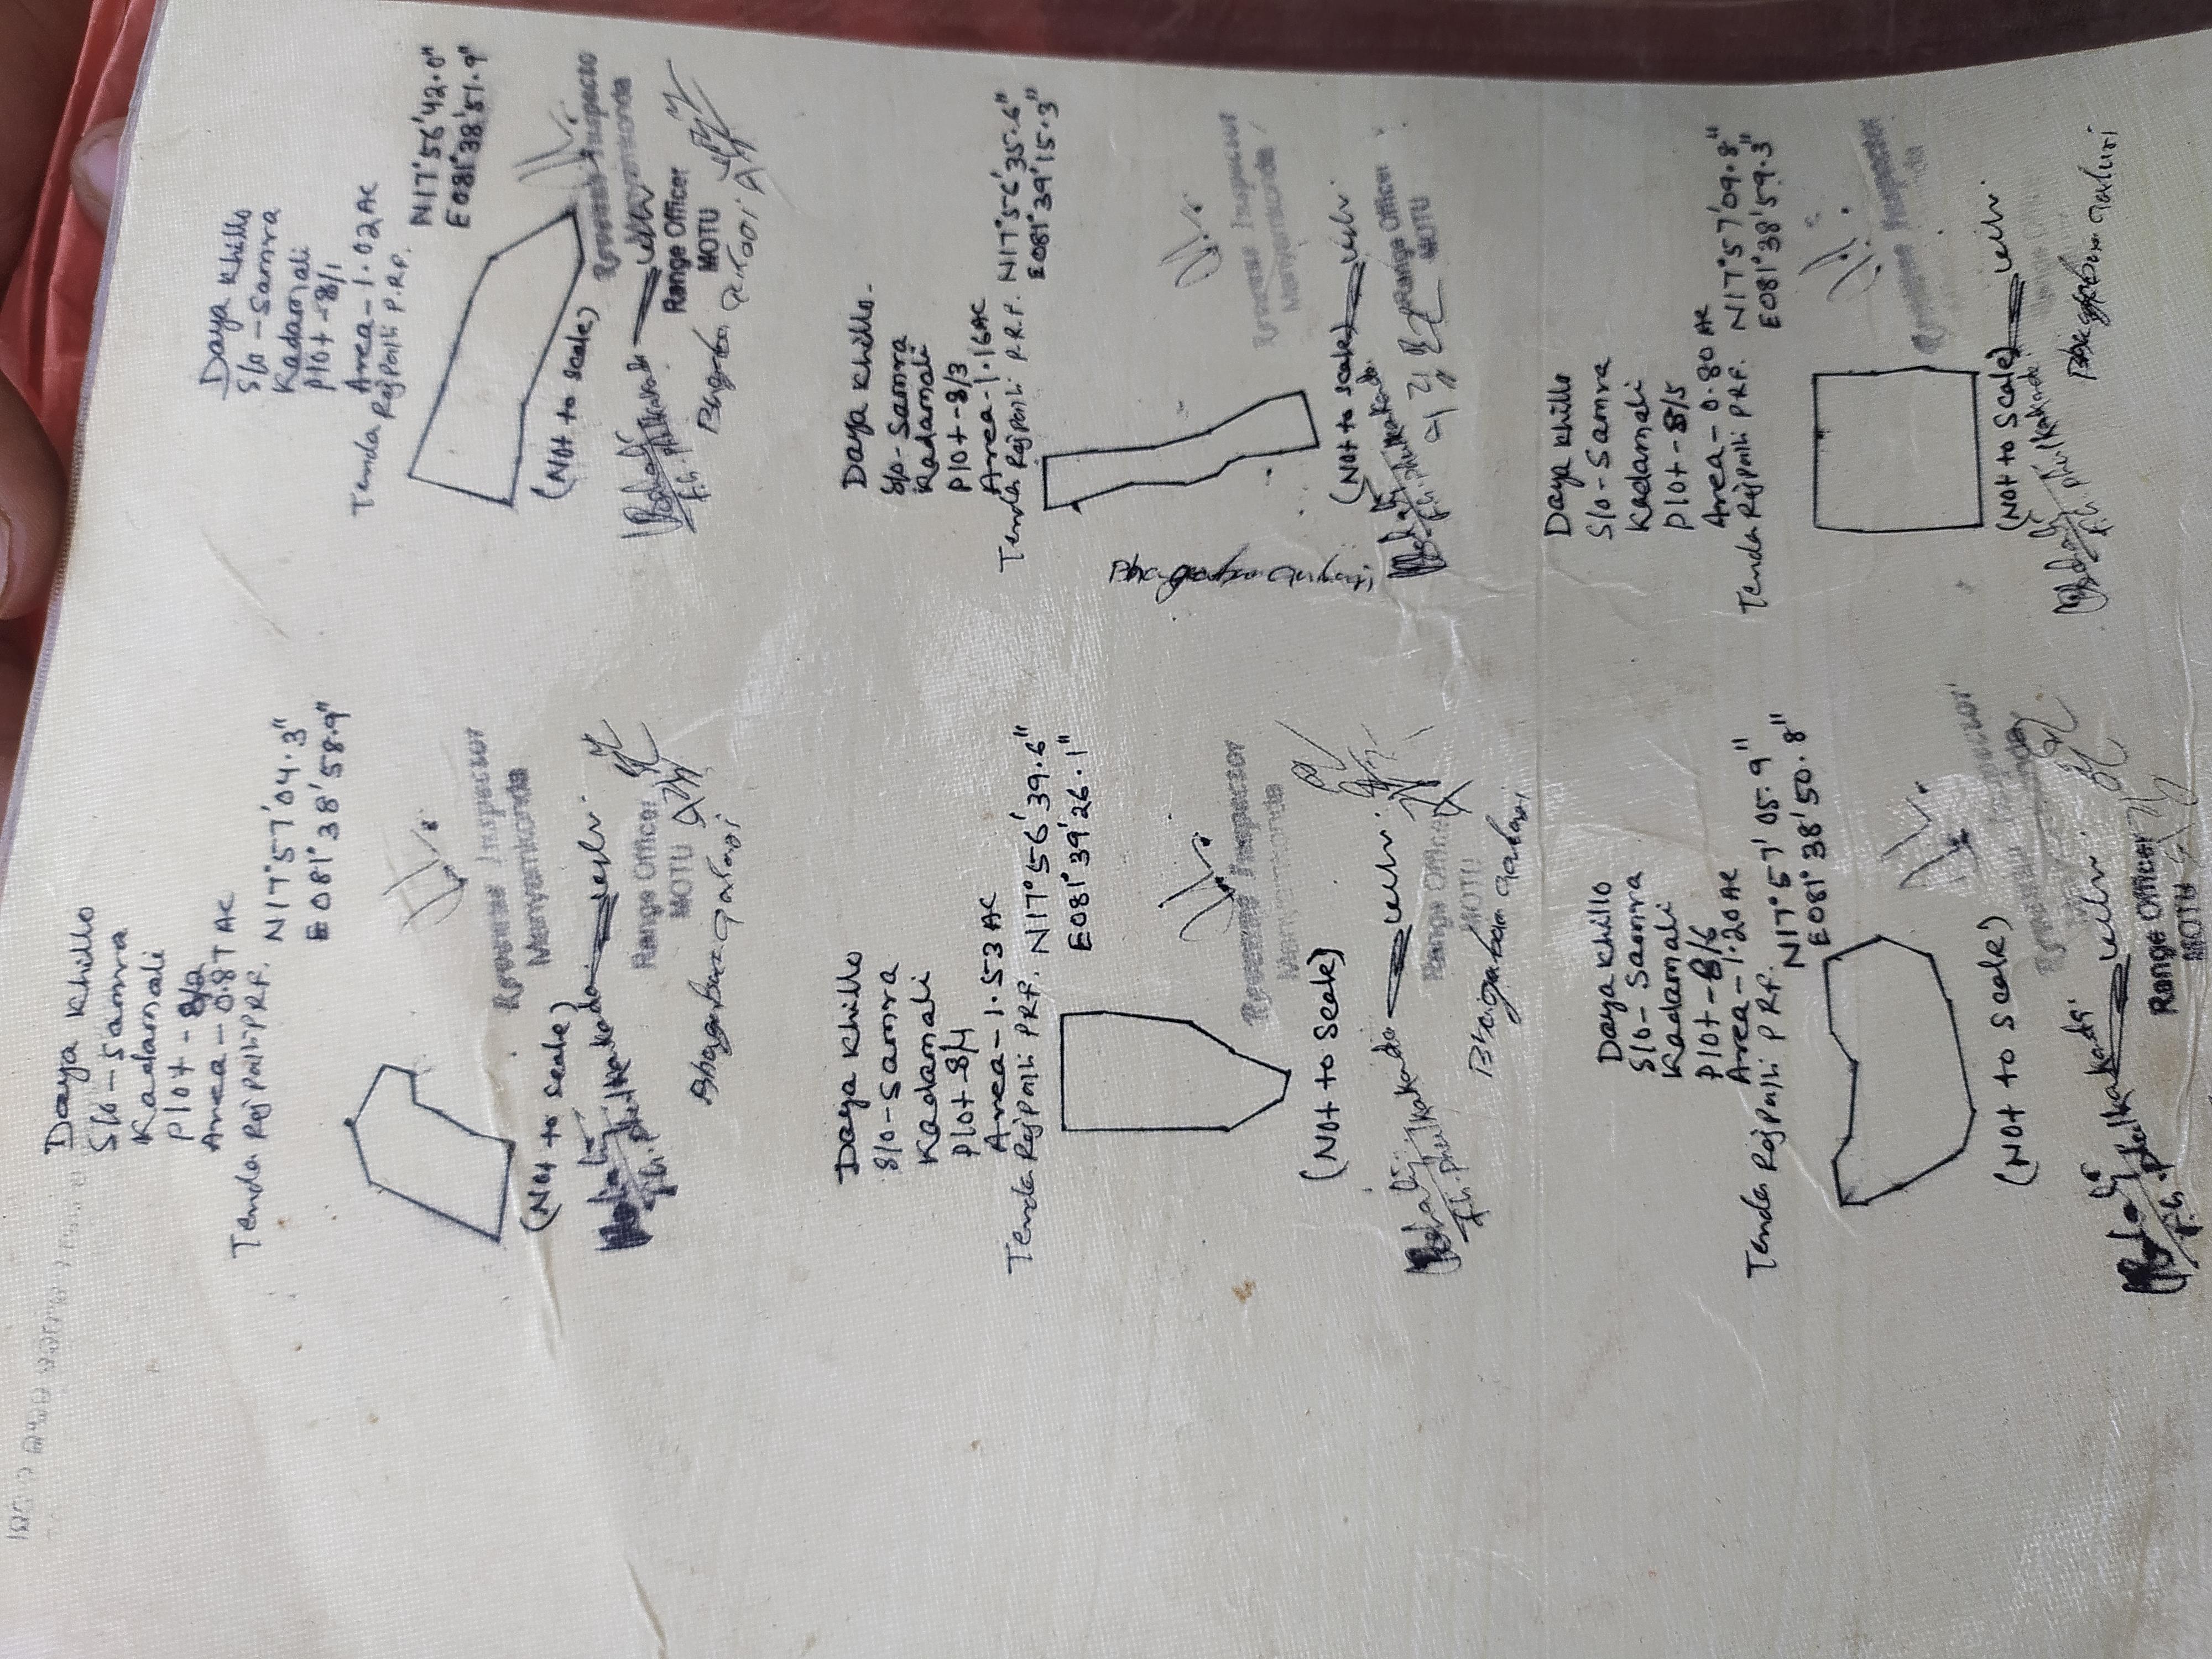 Daya Khillo
S/o - Samra
Kadamali
Plot - 8/1
Area - 1.02 AC
Tenda Rajpalli P.R.F.
N17°56'42.0"
E081°38'51.9"
(Not to scale)
Revenue Inspector
Manyamkonda
Range Officer
MOTU
Daya Khillo
S/o - Samra
Kadamali
Plot - 8/2
Area - 0.87 AC
Tenda Rajpalli P.R.F.
N17°57'04.3"
E081°38'58.9"
(Not to scale)
Revenue Inspector
Manyamkonda
Range Officer
MOTU
Daya Khillo.
S/o - Samra
Kadamali
Plot - 8/3
Area - 1.16 AC
Tenda Rajpalli P.R.F.
N17°56'35.6"
E081°39'15.3"
(Not to scale)
Revenue Inspector
Manyamkonda
Range Officer
MOTU
Daya Khillo
S/o - Samra
Kadamali
Plot - 8/4
Area - 1.53 AC
Tenda Rajpalli P.R.F.
N17°56'39.6"
E081°39'26.1"
(Not to scale)
Revenue Inspector
Manyamkonda
Range Officer
MOTU
Daya Khillo
S/o - Samra
Kadamali
Plot - 8/5
Area - 0.80 AC
Tenda Rajpalli P.R.F.
N17°57'09.8"
E081°38'59.3"
(Not to scale)
Revenue Inspector
Daya Khillo
S/o - Samra
Kadamali
Plot - 8/6
Area - 1.20 AC
Tenda Rajpalli P.R.F.
N17°57'05.9"
E081°38'50.8"
(Not to scale)
Revenue Inspector
Range Officer
MOTU